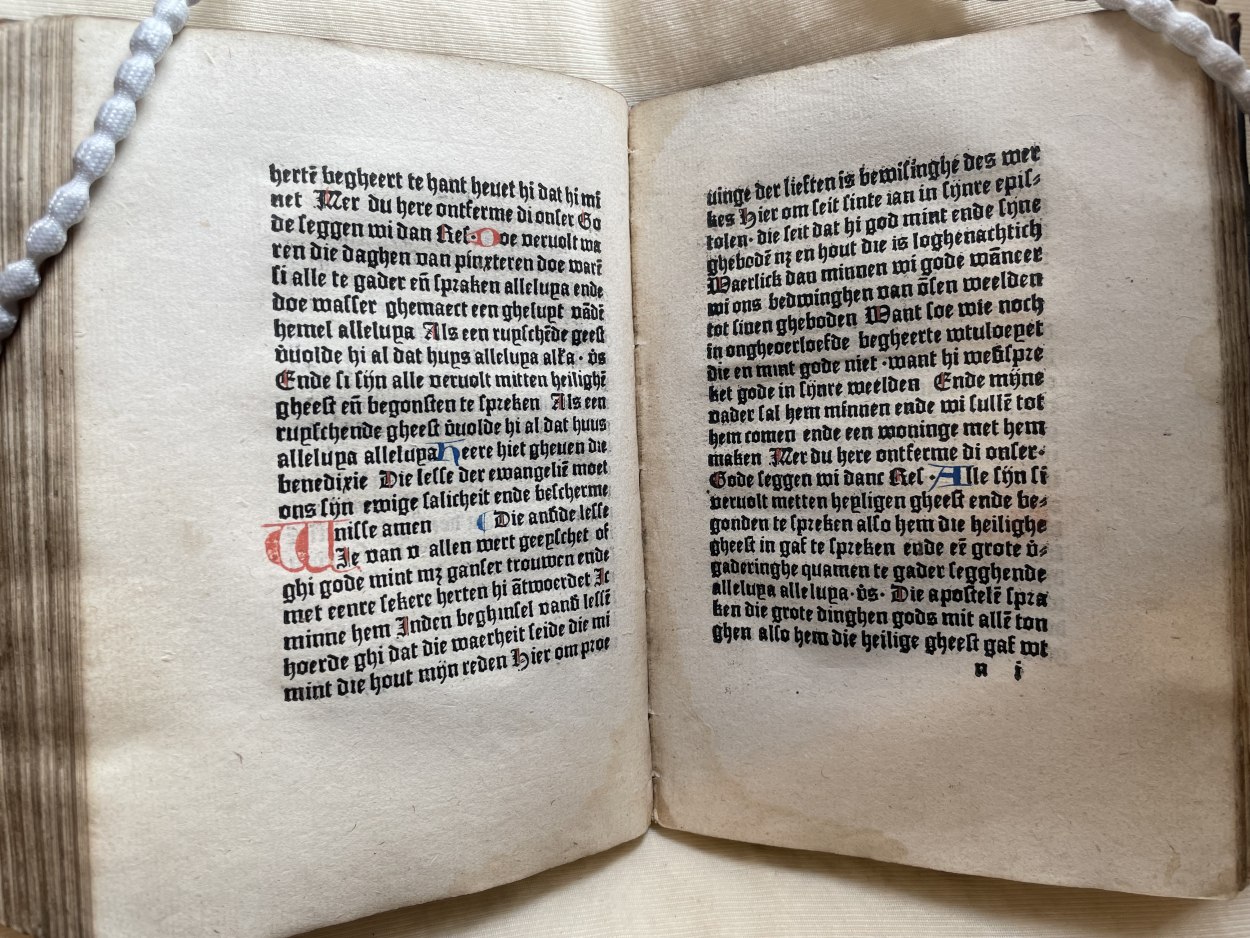 hertē begheert te hant heuet hi dat hi mī
net Mer du here ontferme di onser Go
de seggen wi dan Res· Doe veruolt wa
ren die daghen van pinxteren doe warē
si alle te gader eñ spraken alleluya ende
doe wasser ghemaect een gheluyt vādē
hemel alleluya Als een ruyschēde geest
v̄uolde hi al dat huys alleluya alľa· v̄s
Ende si sijn alle veruolt mitten heilighē
gheest eñ begonsten te spreken Als een
ruyschende gheest v̄uolde hi al dat huus
alleluya alleluya Heere hiet gheuen die
benedixie Die lesse der ewangeliē moet
ons sijn ewige salicheit ende bescherme
nisse amen Die anđde lesse
WIe van v allen wert geeyschet of
ghi gode mint mʒ ganser trouwen ende
met eenre sekere herten hi ātwoerdet Ic
minne hem Inden beghinsel vanđ lessē
hoerde ghi dat die waerheit seide die mi
mint die hout mijn reden Hier om proe
uinge der lieften is bewisinghe des wer
kes Hier om seit sinte ian in sijnre epis⸗
tolen· die seit dat hi god mint ende sijne
ghebodē nʒ en hout die is loghenachtich
Waerlick dan minnen wi gode wāneer
wi ons bedwinghen van ōsen weelden
tot siven gheboden Want soe wie noch
in ongheoerloefde begheerte wtuloeyet
die en mint gode niet ·want hi weđspre
ket gode in sijnre weelden Ende mijne
vader sal hem minnen ende wi sullē tot
hem comen ende een woninge met hem
maken Mer du here ontferme di onser·
Gode seggen wi danc Res· Alle sijn si
veruolt metten heyligen gheest ende be⸗
gonden te spreken also hem die heilighe
gheest in gaf te spreken ende eē grote v̄⸗
gaderinghe quamen te gader segghende
alleluya alleluya· v̄s· Die apostelē spra
ken die grote dinghen gods mit allē ton
ghen also hem die heilige gheest gaf wt
n j